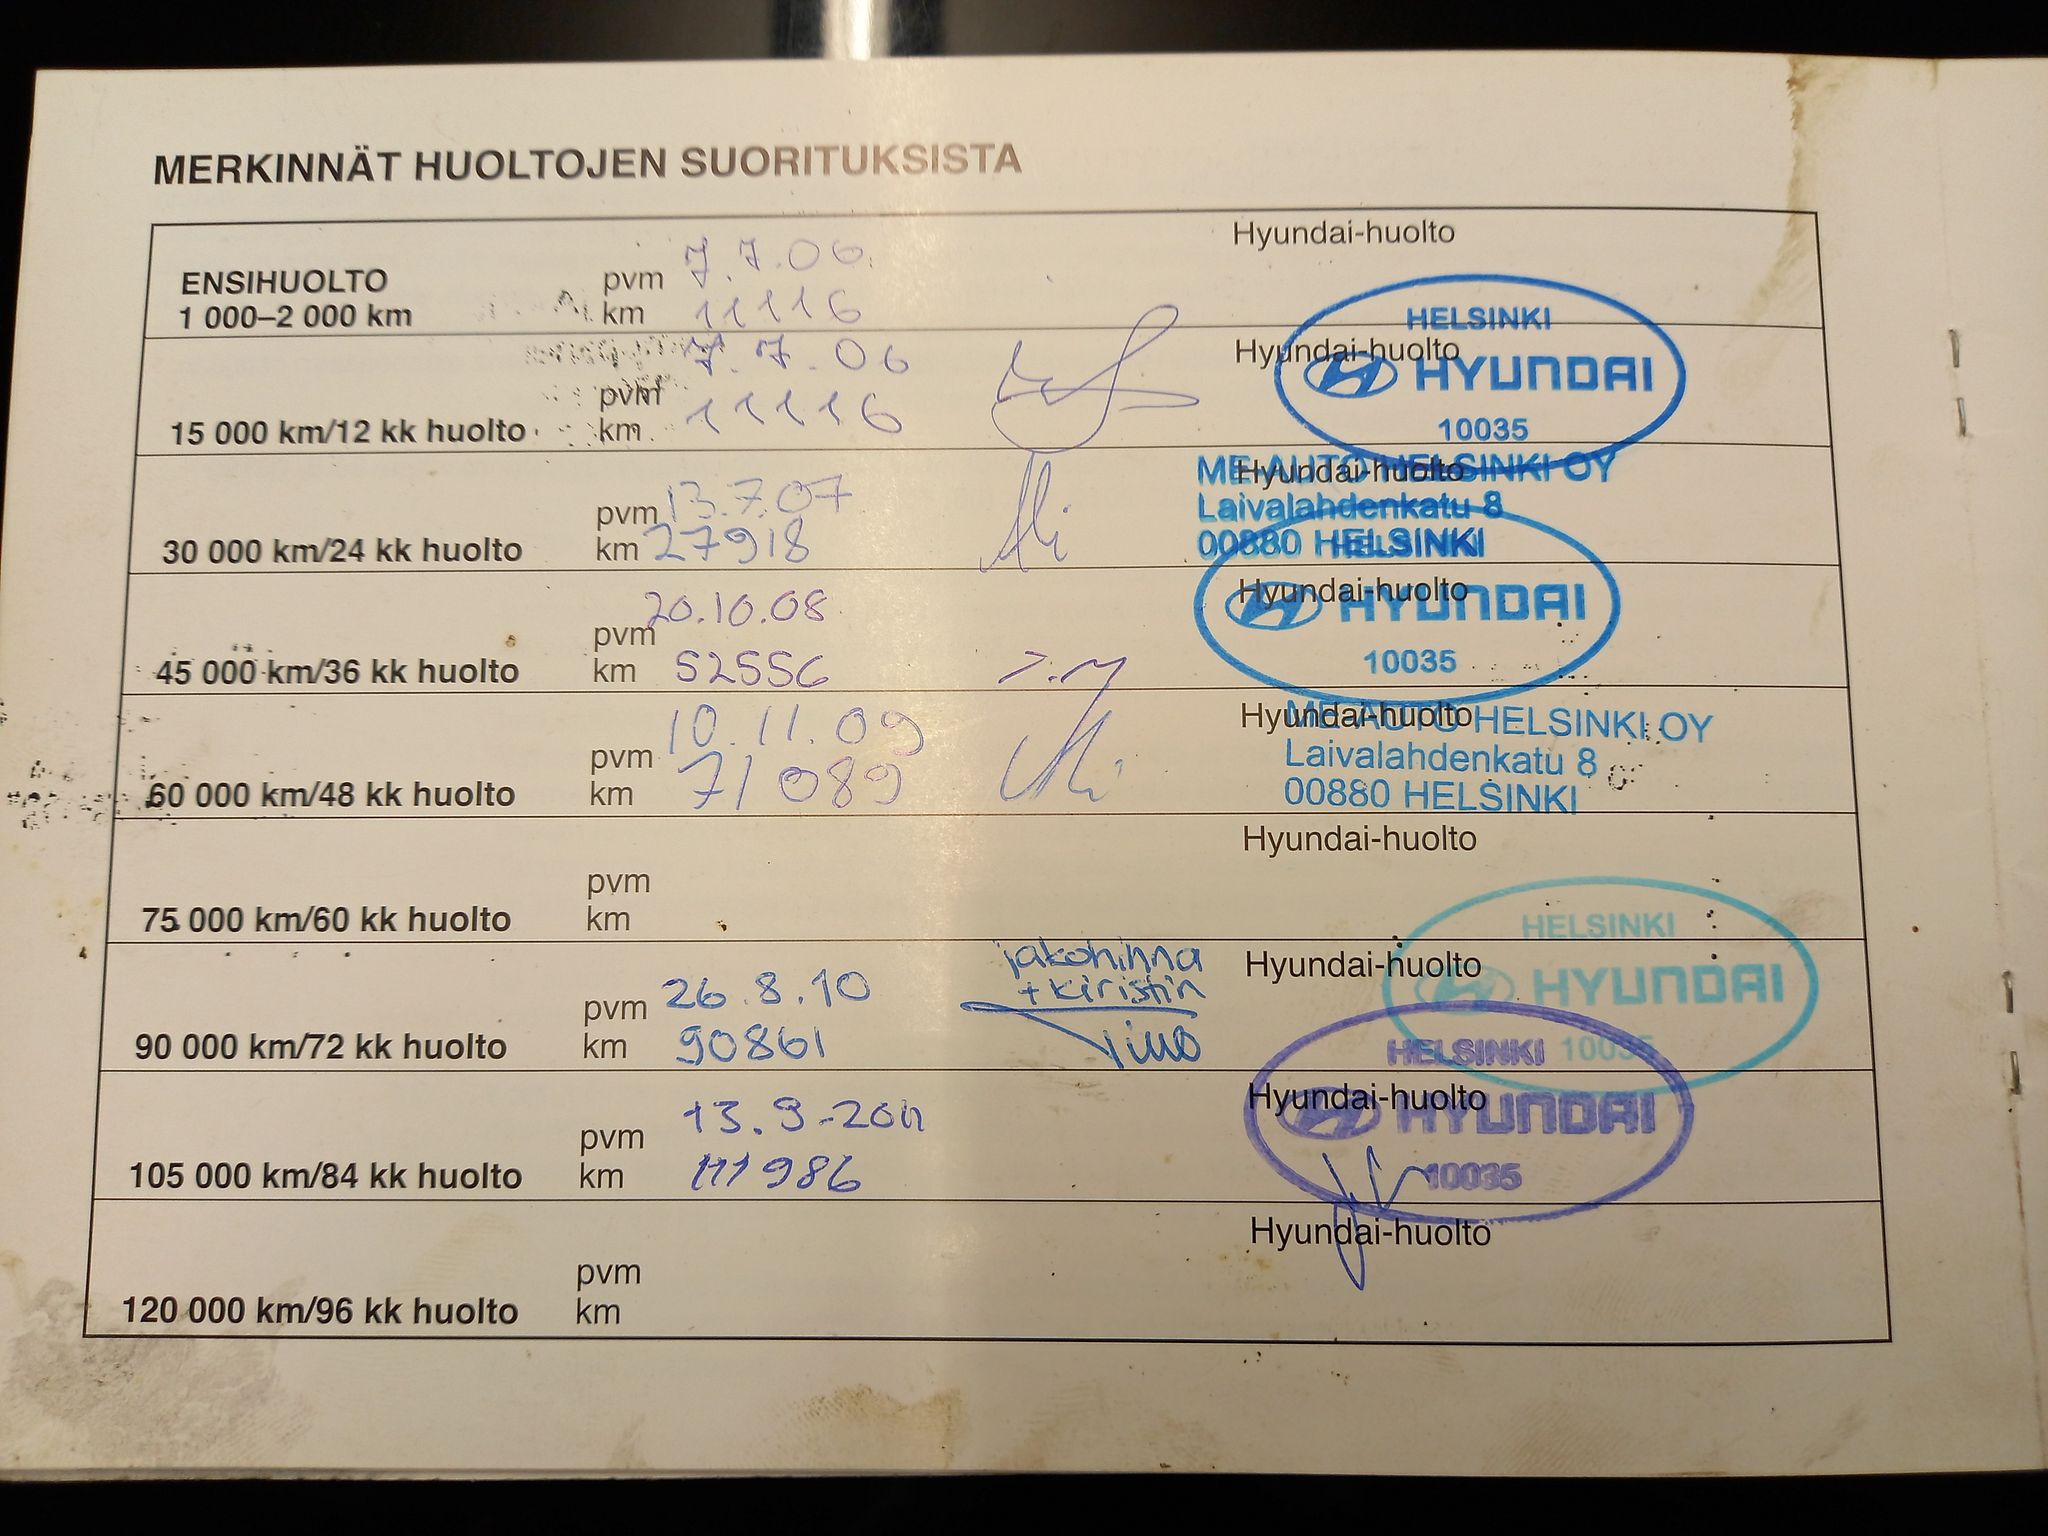 MERKINNÄT HUOLTOJEN SUORITUKSISTA
Hyundai-huolto
ENSIHUOLTO
1 000–2 000 km
pvm 7.7.06.
km 11116
HELSINKI
HYUNDAI
10035
Hyundai-huolto
15 000 km/12 kk huolto
pvm 7.7.06
km 11116
Hyundai-huolto
ME-AUTO HELSINKI OY
Laivalahdenkatu 8
00880 HELSINKI
30 000 km/24 kk huolto
pvm 13.7.07
km 27918
Hyundai-huolto
HELSINKI
HYUNDAI
10035
45 000 km/36 kk huolto
pvm 20.10.08
km 52556
Hyundai-huolto
ME-AUTO HELSINKI OY
Laivalahdenkatu 8
00880 HELSINKI
60 000 km/48 kk huolto
pvm 10.11.09
km 71089
Hyundai-huolto
75 000 km/60 kk huolto
pvm
km
HELSINKI
HYUNDAI
10035
Hyundai-huolto
90 000 km/72 kk huolto
pvm 26.8.10
km 90861
jakohinna
+ kiristin
Timo
Hyundai-huolto
HELSINKI
HYUNDAI
10035
105 000 km/84 kk huolto
pvm 13.9-2011
km 111986
Hyundai-huolto
120 000 km/96 kk huolto
pvm
km